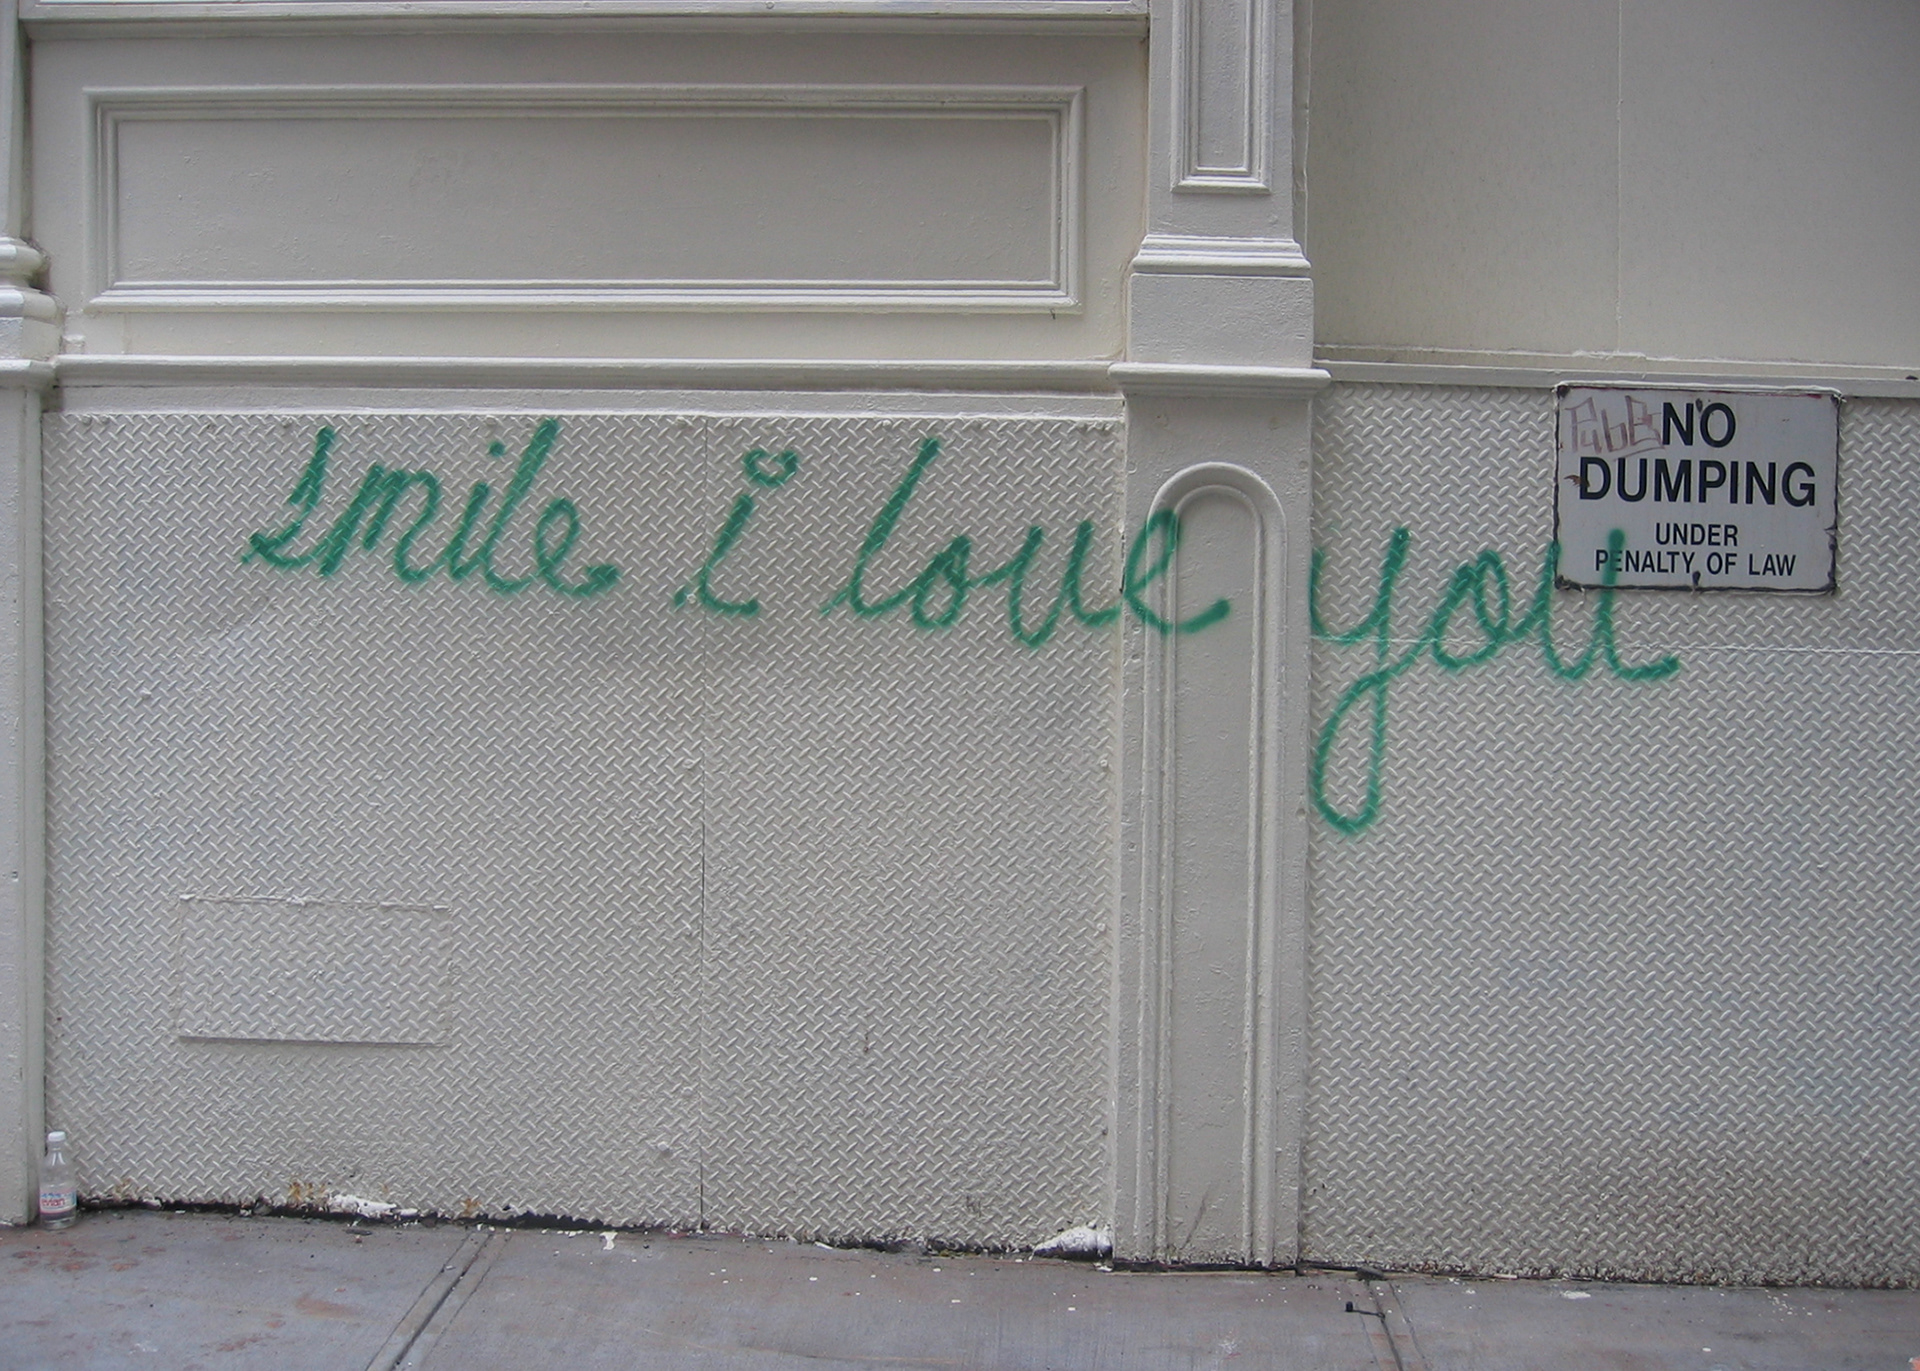 smile i love you
NO
DUMPING
UNDER
PENALTY OF LAW
evian